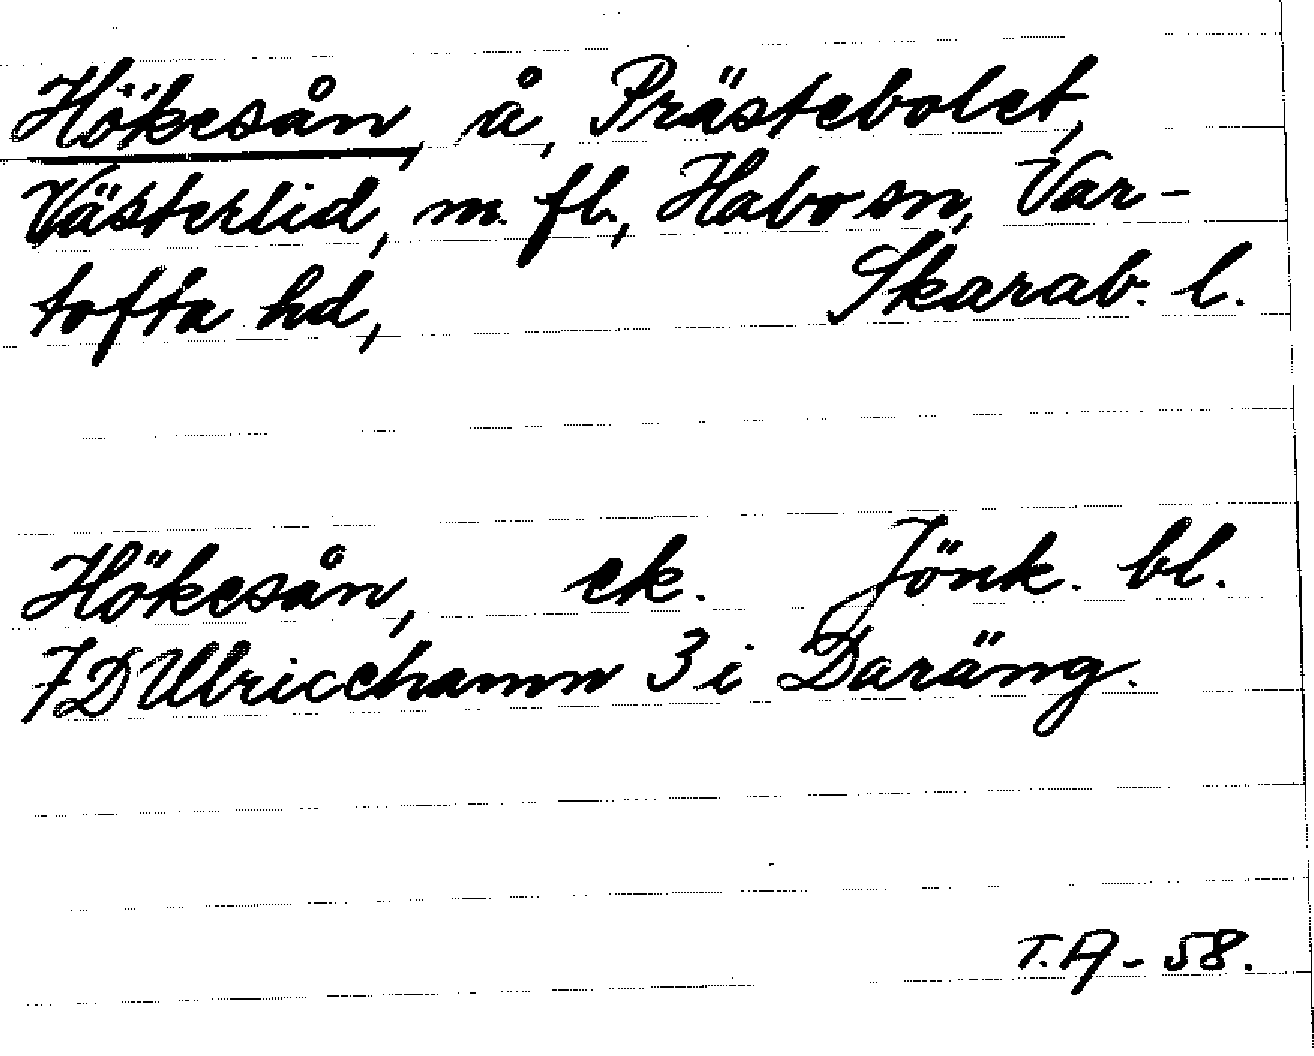 Hökesån, å, Prästebolet,
Västerlid, m. fl., Habo sn, Var-
tofta hd, Skarab. l.
Hökesån, ek. Jönk. bl.
7D Ulricehamn 3 i Daräng.
T.A - 58.